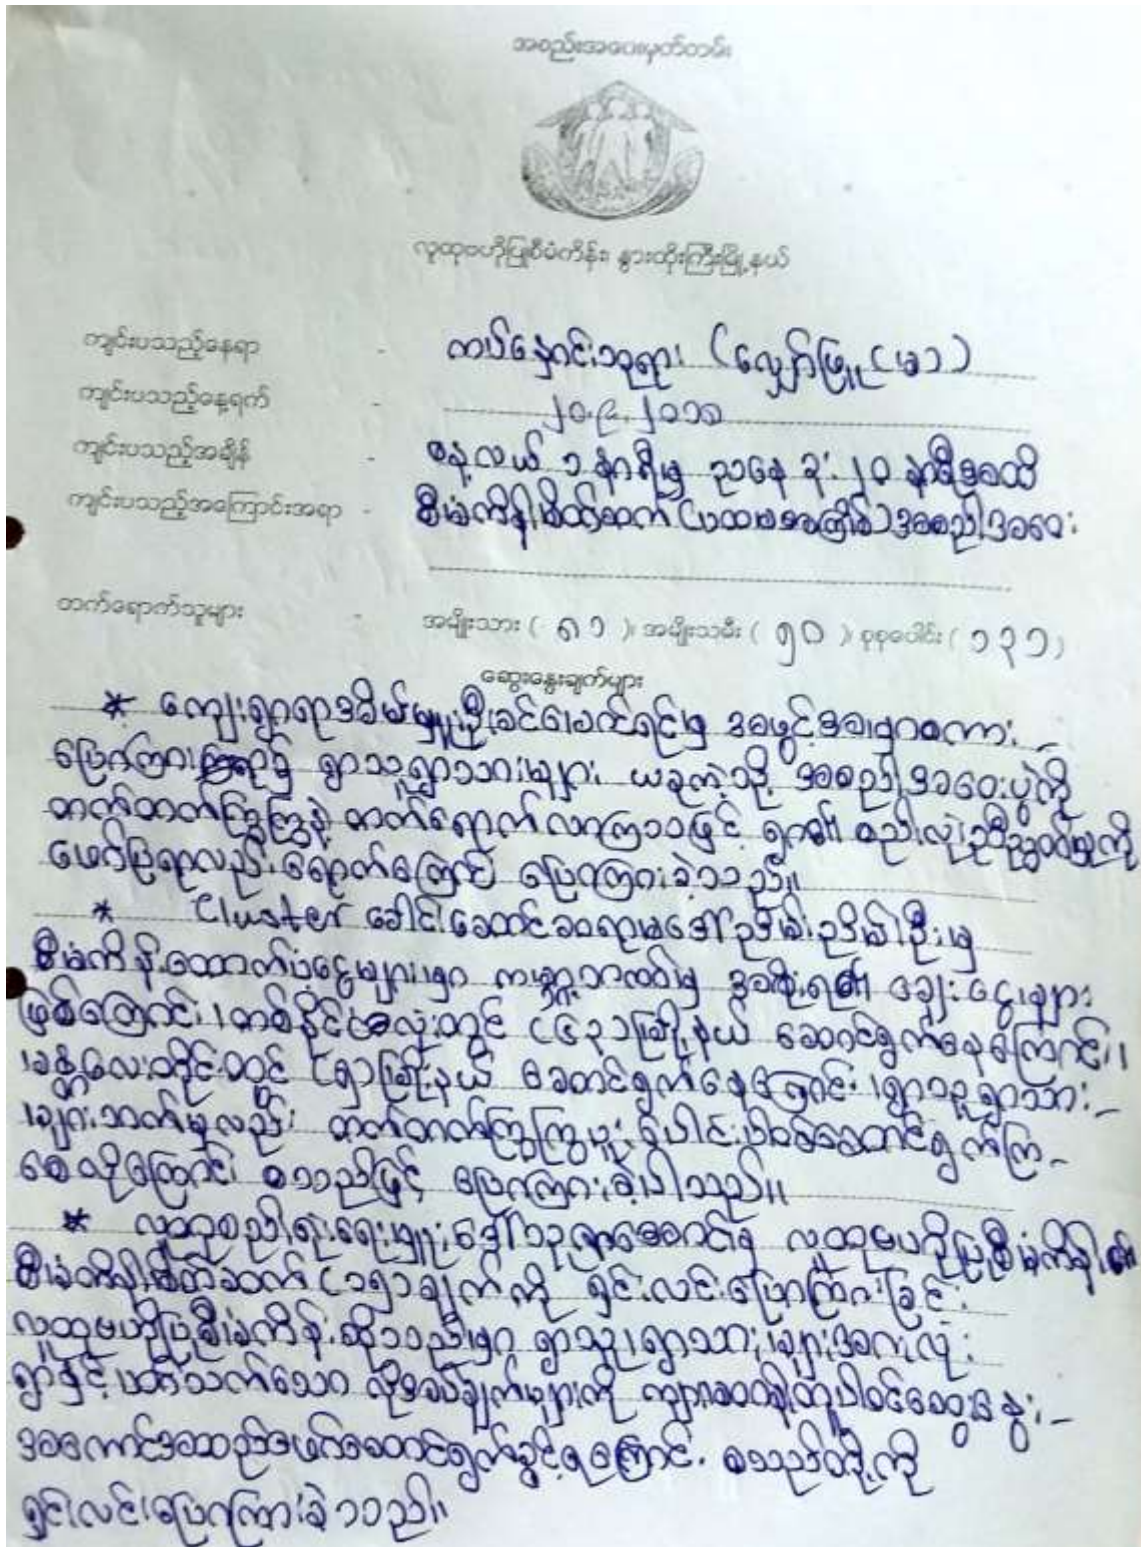 အစည်းအဝေးမှတ်တမ်း
လူထုဗဟိုပြုစီမံကိန်း၊ နွားထိုးကြီးမြို့နယ်
ကျင်းပသည့်နေရာ -
ကျင်းပသည့်နေ့ရက် - ၂၀.၉.၂၀၁၈
ကျင်းပသည့်အချိန် - နေ့လယ် ၁ နာရီမှ ညနေ ၃း ၂၀ နာရီအထိ
ကျင်းပသည့်အကြောင်းအရာ - စီမံကိန်းမိတ်ဆက် (ပထမအကြိမ်) အစည်းအဝေး
တက်ရောက်သူများ - အမျိုးသား ( ၈၁ )၊ အမျိုးသမီး ( ၅၀ )၊ စုစုပေါင်း ( ၁၃၁ )
ဆွေးနွေးချက်များ
* ကျေးရွာရာအိမ်မှူးဦးခင်မောင်ရင်မှ အဖွင့်အမှာစကား
ပြောကြားရာ၌ ရွာသူရွာသားများ ယခုကဲ့သို့ အစည်းအဝေးပွဲကို
တက်တက်ကြွကြွနဲ့ တက်ရောက်လာကြသဖြင့် ရွာ၏ စည်းလုံးညီညွတ်မှုကို
ဖော်ပြရာလည်းရောက်ကြောင်း ပြောကြားခဲ့သည်။
* Cluster ခေါင်းဆောင်ဆရာမဒေါ်ဥဒိမ်းဥဒိမ်ဦးမှ
စီမံကိန်းထောက်ပံ့ငွေများမှာ ကမ္ဘာ့ဘဏ်မှ အစိုးရ၏ ချေးငွေများ
ဖြစ်ကြောင်း၊ တစ်နိုင်ငံလုံးတွင် (၆၃)မြို့နယ် ဆောင်ရွက်နေကြောင်း၊
မန္တလေးတိုင်းတွင် (၅)မြို့နယ် ဆောင်ရွက်နေကြောင်း၊ ရွာသူရွာသား
များဘက်မှလည်း တက်တက်ကြွကြွပူးပေါင်းပါဝင်ဆောင်ရွက်ကြ
စေလိုကြောင်း စသည်ဖြင့် ပြောကြားခဲ့ပါသည်။
* လူထုစည်းရုံးရေးမှူး လူထုဗဟိုပြုစီမံကိန်း၏
စီမံကိန်းမိတ်ဆက် (၁၅)ချက်ကို ရှင်းလင်းပြောကြားခြင်း
လူထုဗဟိုပြုစီမံကိန်းဆိုသည်မှာ ရွာသူ၊ရွာသားများအားလုံး
ရွာနှင့်ပတ်သက်သော လိုအပ်ချက်များကို ကျား၊မတန်းတူပါဝင်ဆွေးနွေး
အကောင်အထည်ဖော်ဆောင်ရွက်ခွင့်ရကြောင်း စသည်တို့ကို
ရှင်းလင်းပြောကြားခဲ့သည်။